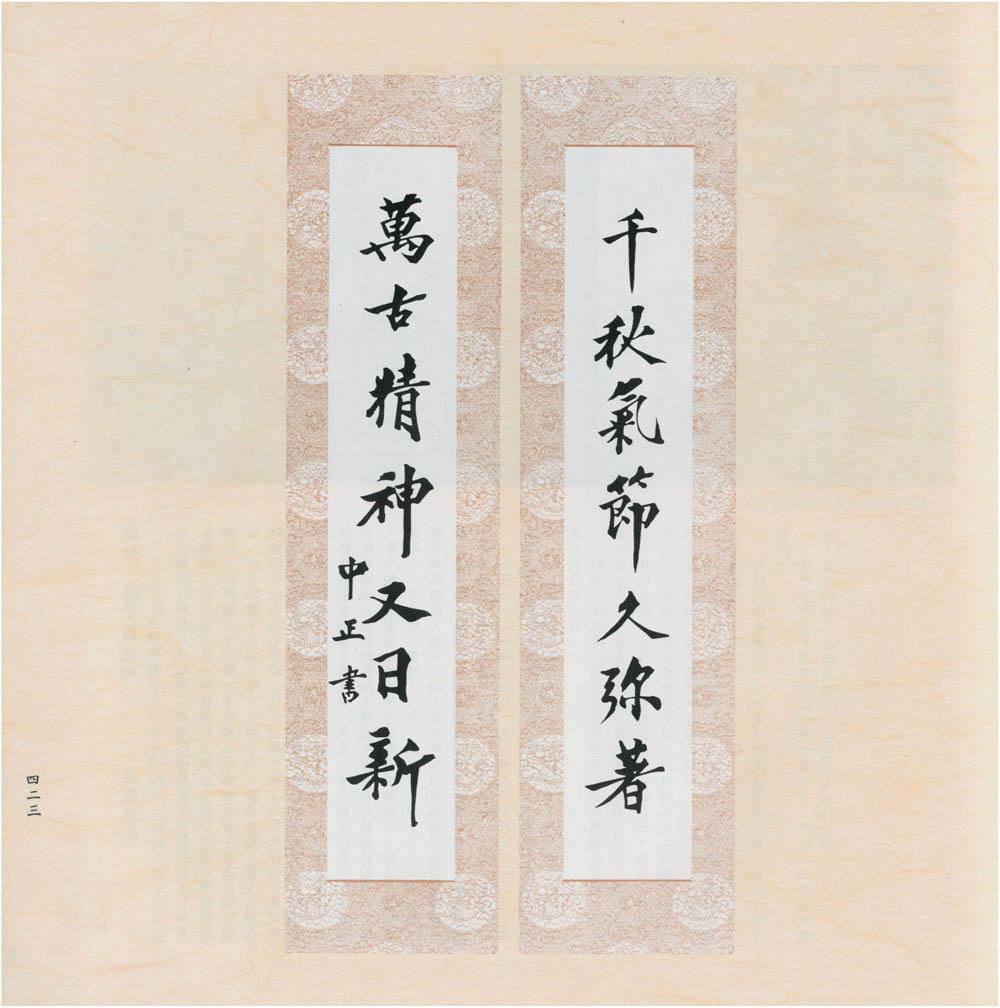 千秋氣節久弥著
萬古精神又日新
中正書
四二三